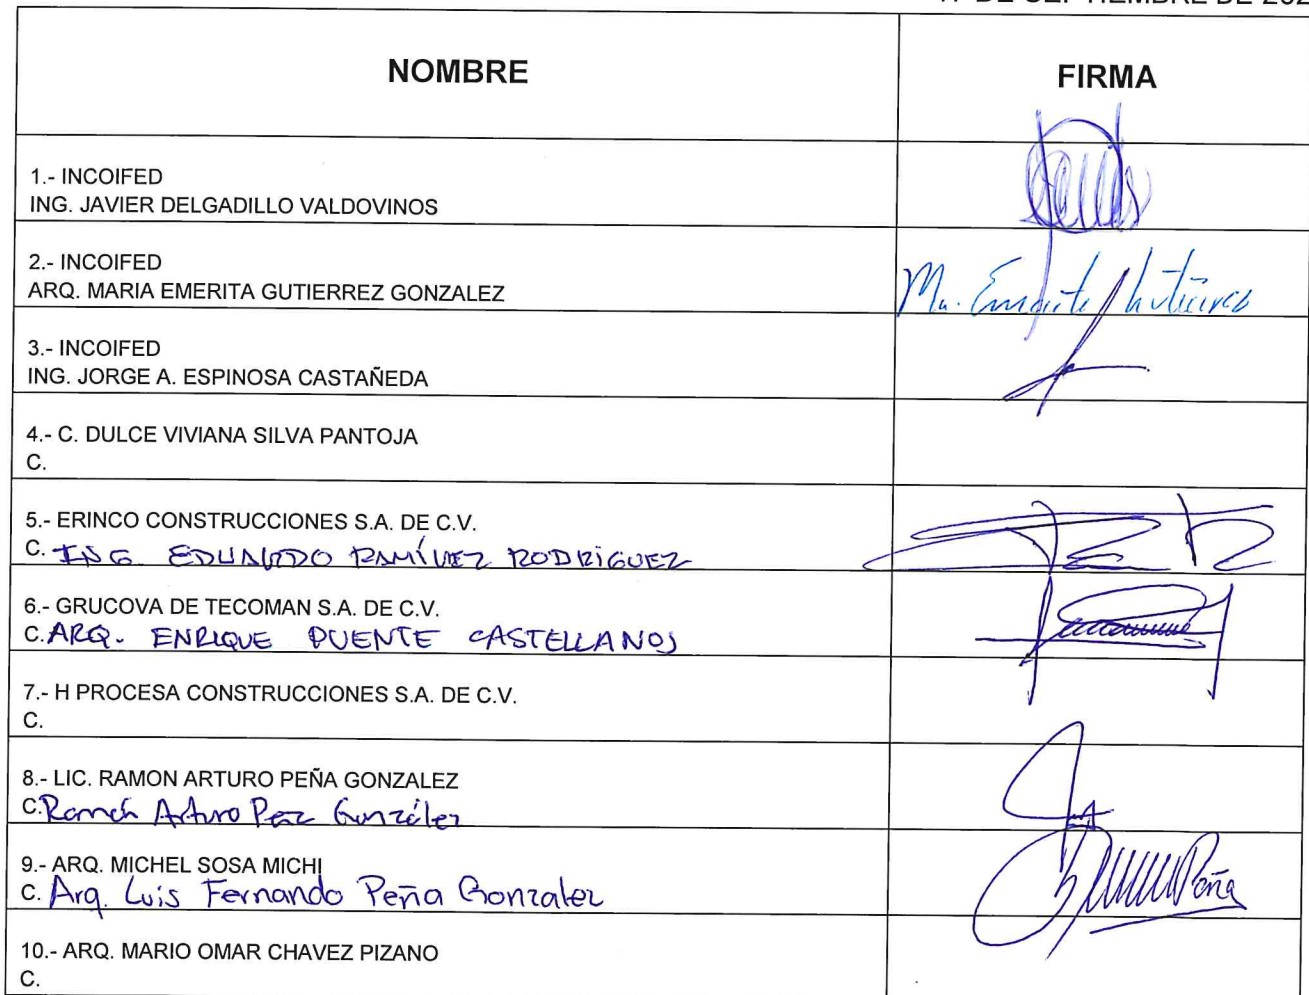 DE SEPTIEMBRE DE 202
NOMBRE
FIRMA
1.- INCOIFED
ING. JAVIER DELGADILLO VALDOVINOS
2.- INCOIFED
ARQ. MARIA EMERITA GUTIERREZ GONZALEZ
Ma. Emerita Gutierrez
3.- INCOIFED
ING. JORGE A. ESPINOSA CASTAÑEDA
4.- C. DULCE VIVIANA SILVA PANTOJA
C.
5.- ERINCO CONSTRUCCIONES S.A. DE C.V.
C. ING. EDUARDO RAMÍREZ RODRÍGUEZ
6.- GRUCOVA DE TECOMAN S.A. DE C.V.
C. ARQ. ENRIQUE PUENTE CASTELLANOS
7.- H PROCESA CONSTRUCCIONES S.A. DE C.V.
C.
8.- LIC. RAMON ARTURO PEÑA GONZALEZ
C. Ramón Arturo González
9.- ARQ. MICHEL SOSA MICHI
C. Arq. Luis Fernando Peña Gonzalez
Peña
10.- ARQ. MARIO OMAR CHAVEZ PIZANO
C.